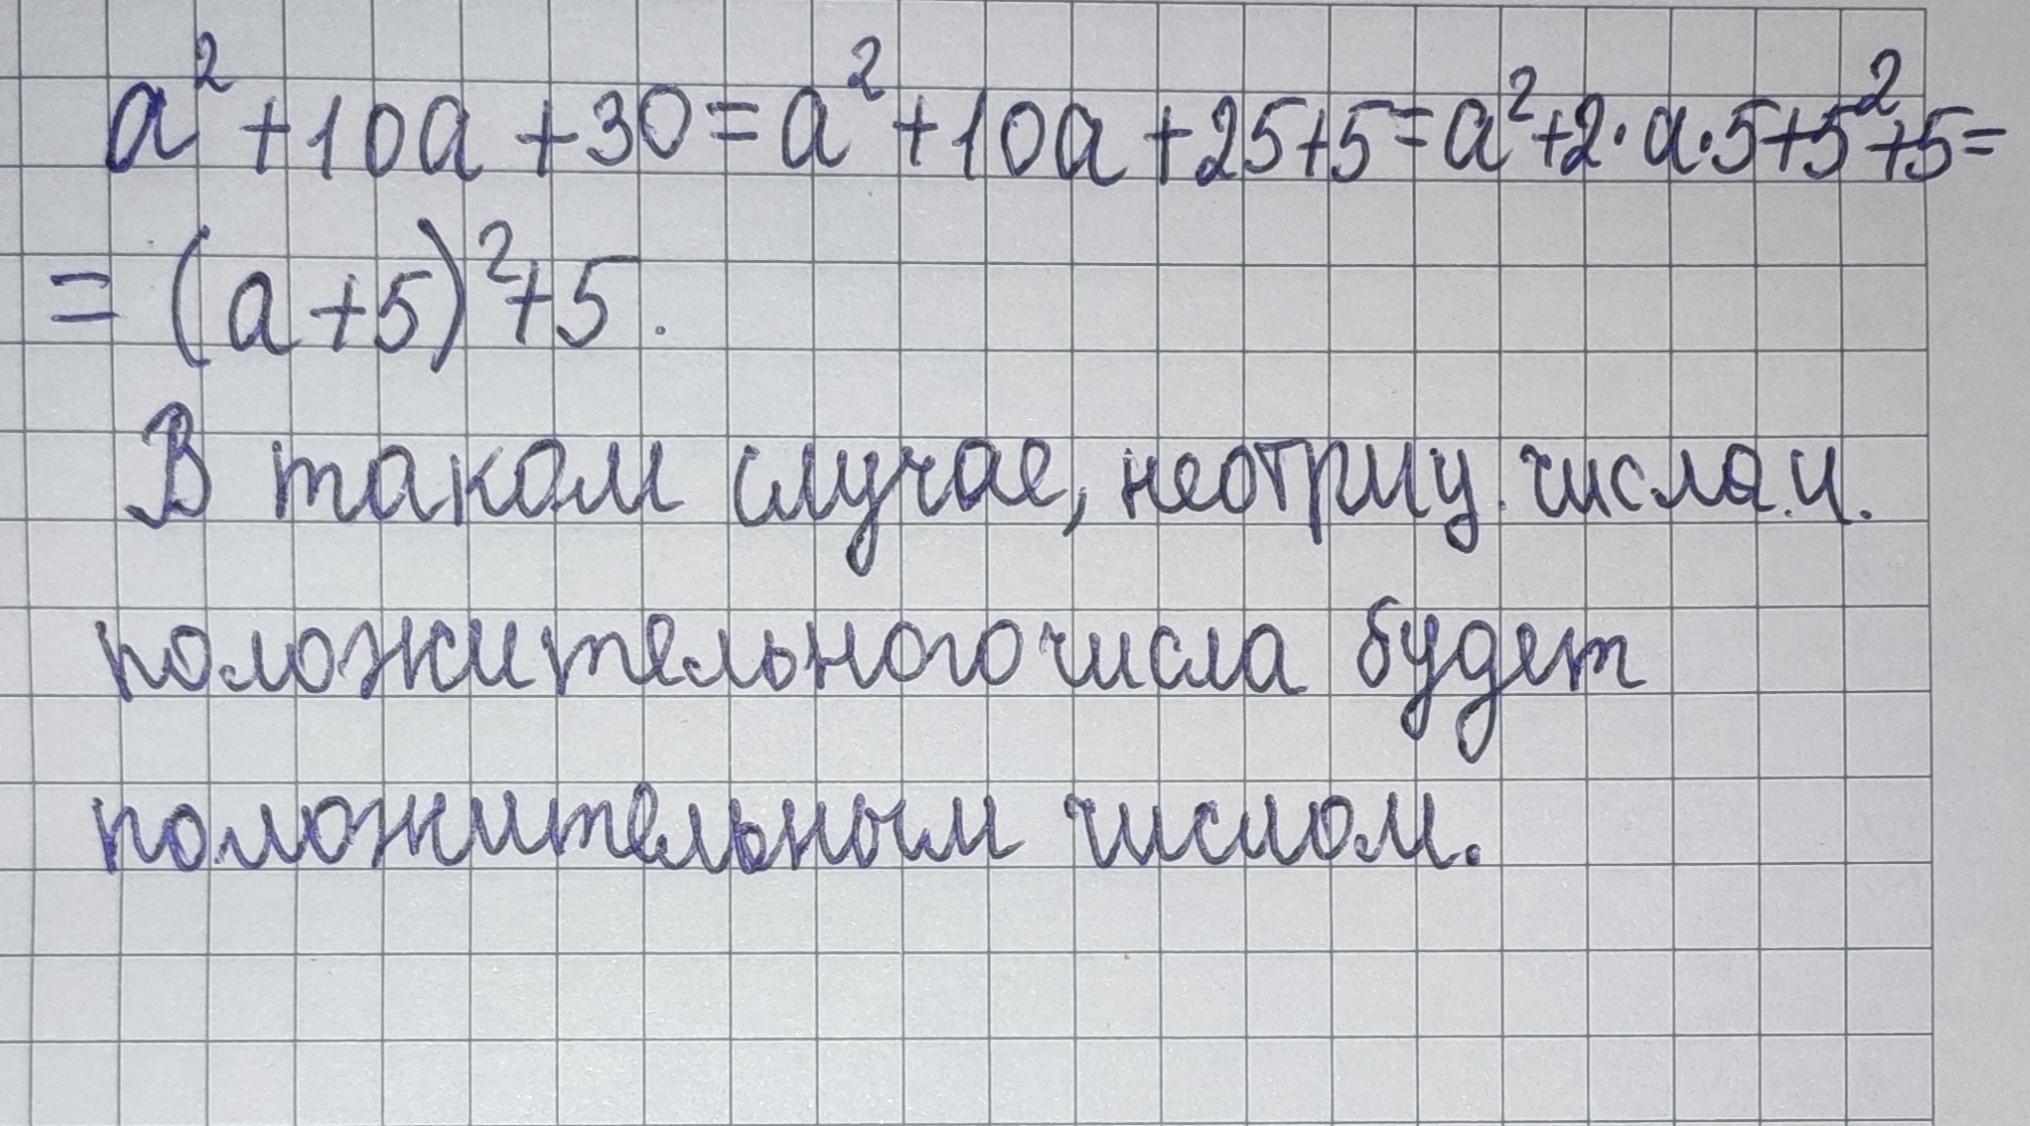 a²+10a+30=a²+10a+25+5=a²+2·a·5+5²+5=
=(a+5)²+5.
В таком случае, неотриц. числа и.
положительного числа будет
положительным числом.